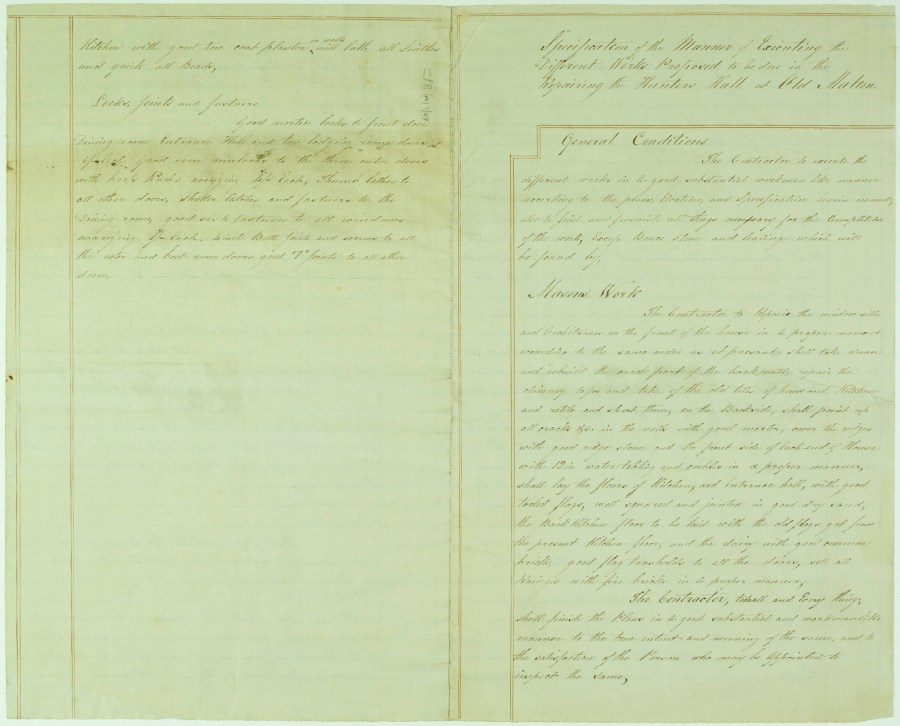 Kitchen with good two coat plaster on walls and lath all
and quirk all Beads,
Locks, Joints and fastners
Good mortice locks to front door
Dining room Entrance Hall and two lodging room doors
Good rim to the three outer doors
with keys Knobs averaging Each, Thumb latches to
all other doors, shutter latches and fastners to the
Dining room, good sash fastners to all windows
averaging Each. Butt joints and screws to all
the outer and bed room doors good "T" joints to all other
doors.
Specification of the Manner of Executing the
Different Works Proposed to be done in the
Repairing the Hunters Hall at Old Malton.
General Conditions
The Contractor to execute the
different works in a good substantial workman like manner
according to the plans, Elevations and Specification herein named,
also to find and furnish all things necessary for the Completion
of the work, Except stone and leading which will
be found by,
Masons Work
The Contractor to Repair the window sills
and Architraves on the front of the house in a proper manner
according to the same order as at present, shall take down
and rebuild the part of the back wall, repair the
chimney tops and take of the old tiles of house and Kitchen
and retile and them, on the Backside, shall point up
all cracks &c. in the walls with good mortar, cover the ridges
with good ridge stone and the front side of Each end of House
with 12 in water tabling and in a proper manner,
shall lay the floors of Kitchen, and Entrance hall, with good
tooled flags, well squared and jointed in good dry sand,
the Back Kitchen floor to be laid with the old flags got from
the present Kitchen floor, and the dairy with good common
bricks, good flag tresholds to all the doors, set all
Ranges with fire bricks in a proper manner,
The Contractor, to do all and Every thing,
shall finish the Place in a good substantial and workmanlike
manner to the true intent and meaning of the same, and to
the satisfaction of the Person who may be Appointed to
inspect the same,